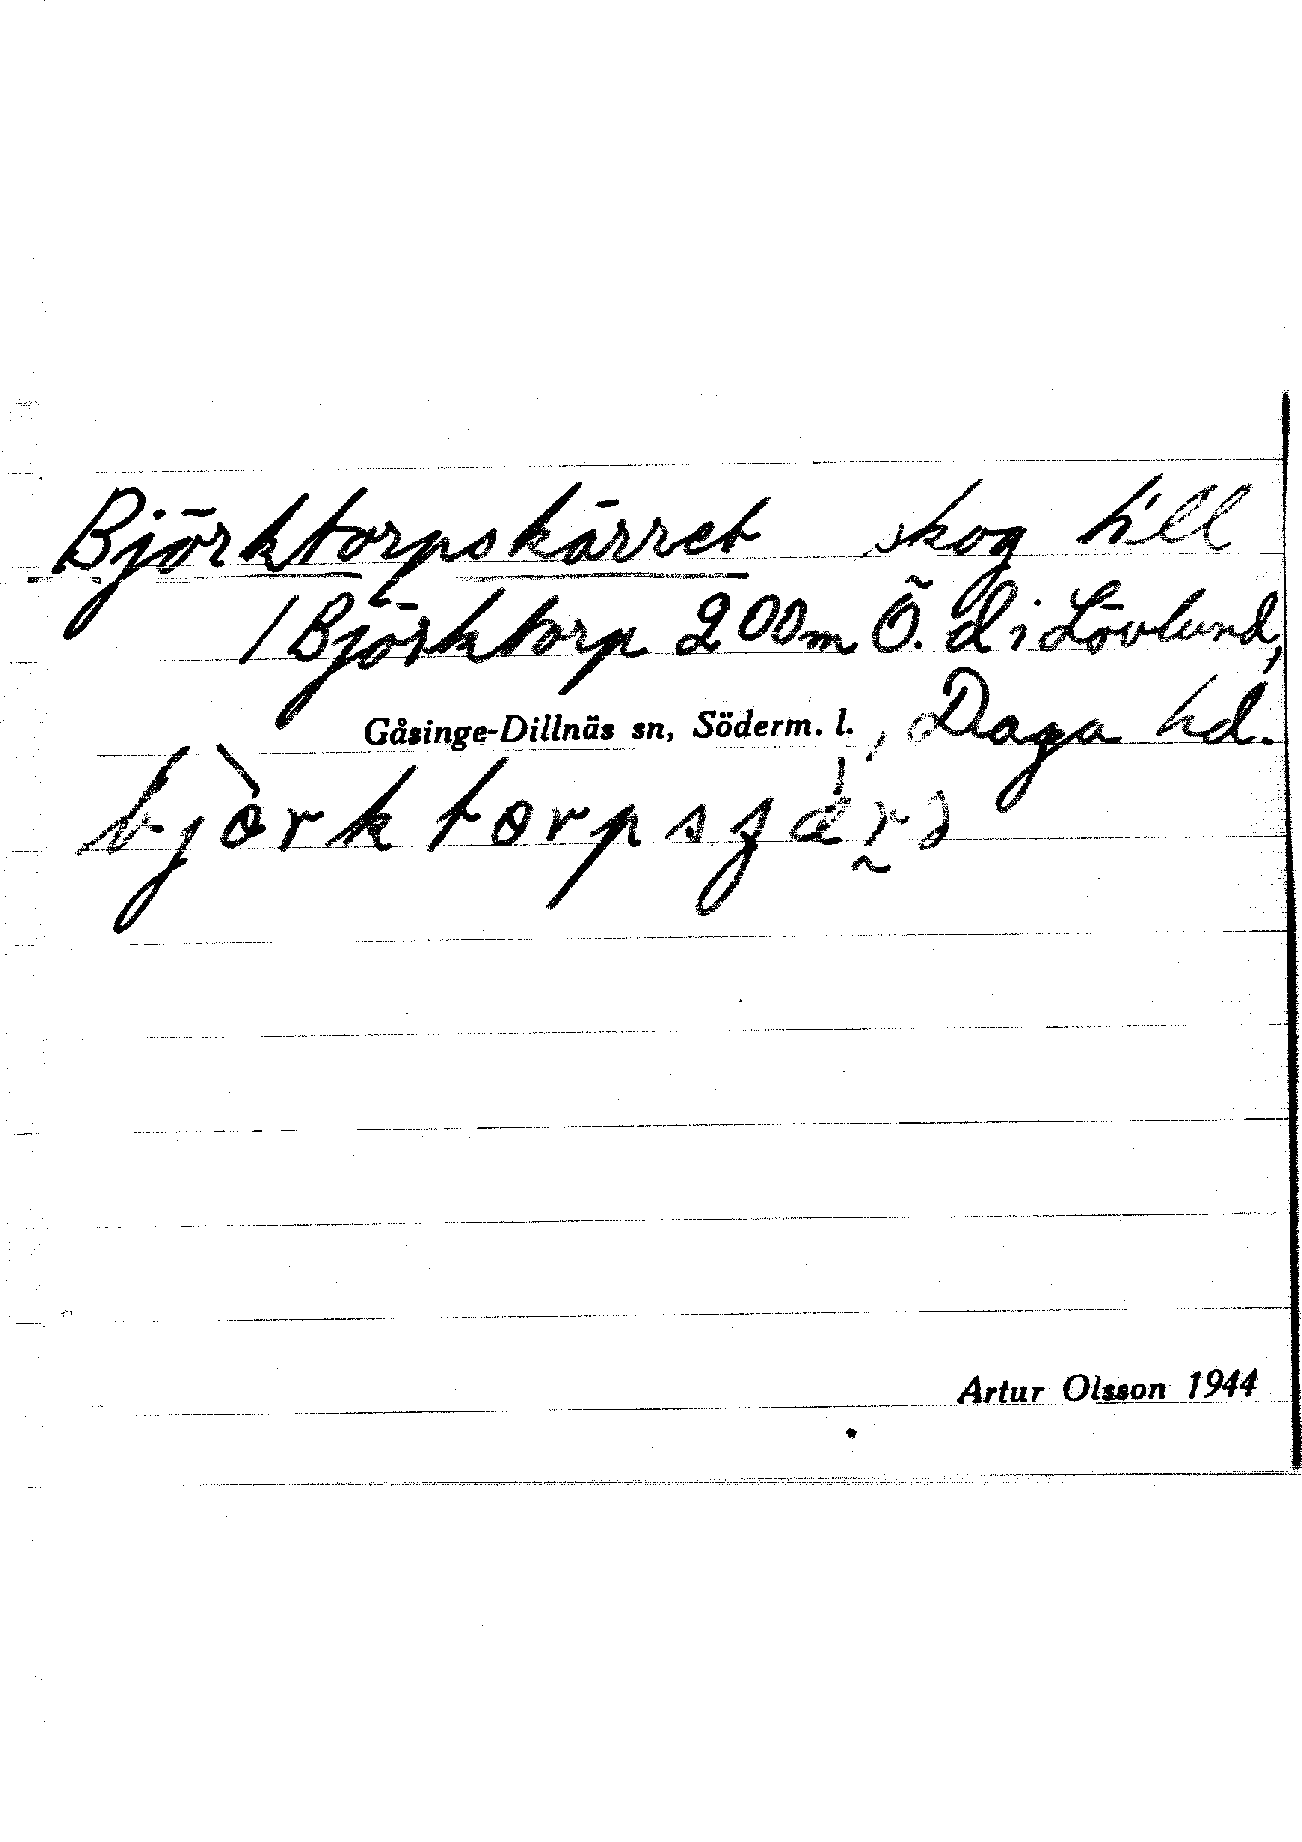 Björktorpskärret skog till
1 Björktorp 200m Ö. d i Lövlund,
Gåsinge-Dillnäs sn, Söderm. l., Daga hd.
Artur Olsson 1944